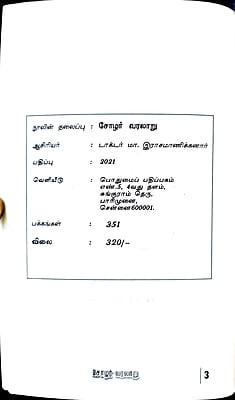 நூலின் தலைப்பு : சோழர் வரலாறு
ஆசிரியர் : டாக்டர் மா. இராசமாணிக்கனார்
பதிப்பு : 2021
வெளியீடு : பொதுமைப் பதிப்பகம்
எண்.5, 4வது தளம்,
சுங்குராம் தெரு,
பாரிமுனை,
சென்னை600001.
பக்கங்கள் : 351
விலை : 320/-
சோழர் வரலாறு 3